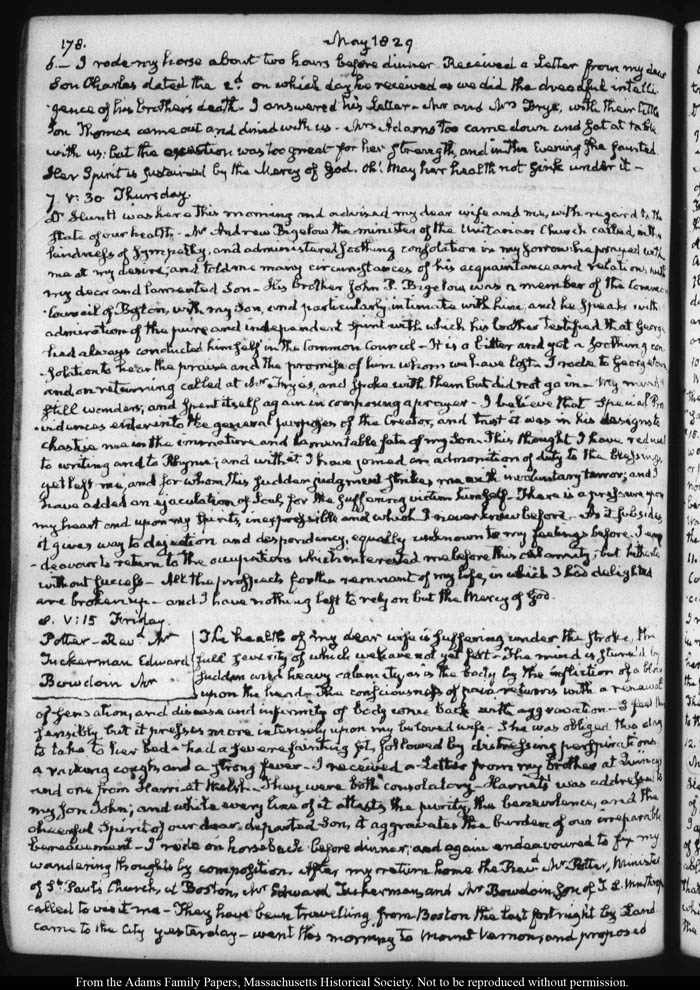 178. May 1829.
6.— I rode my horse about two hours before dinner. Received a Letter from my dear
Son Charles dated the 2.d on which day he received as we did the dreadful intelli-
-gence of his brothers death. I answered his Letter— Mr and Mrs Frye, with their little
Son Thomas came out and dined with us— Mrs Adams too came down and sat at table
with us: but the exertion was too great for her strength, and in the Evening she fainted.
Her Spirit is sustained by the Mercy of God. Oh! may her health not sink under it—
7. V: 30 Thursday.
Dr Huntt was here this morning and advised my dear wife and me, with regard to the
state of our health.— Mr Andrew Bigelow the minister of the Unitarian Church called, in the
kindness of Sympathy, and administered soothing consolation in my sorrow. He prayed with
me at my desire; and told me many circumstances of his acquaintance and relations with
my dear and lamented Son— His brother John P. Bigelow was a member of the Common
Council of Boston, with my Son, and particularly intimate with him; and he speaks with
admiration of the pure and independent spirit with which his brother testified that George
had always conducted himself in the Common Council— It is a bitter and yet a soothing con-
solation to hear the praise and the promise of him whom we have lost— I rode to Georgetown
and on returning called at Mr Frye's, and spoke with them but did not go in— My mind
still wanders; and spent itself again in composing a prayer— I believe that special Pro-
-vidences enter into the general purposes of the Creator, and trust it was in his designs to
chastise me in the and lamentable fate of my Son. This thought I have reduced
to writing and to Rhyme; and with it I have joined an admonition of duty to the blessings
yet left me, and for whom this sudden judgment strikes me with involuntary terror; and I
have added an ejaculation of Soul, for the suffering victim himself— There is a pressure upon
my heart and upon my Spirits, inexpressible and which I never knew before— As it subsides
it gives way to dejection and despondency, equally unknown to my feelings before. I en-
-deavour to return to the occupations which interested me before this calamity; but hitherto
without success— All the prospects for the remnant of my life, in which I had delighted
are broken up— and I have nothing left to rely on but the Mercy of God.
8. V: 15 Friday.
Potter— Revd Mr
Tuckerman Edward
Bowdoin Mr
The health of my dear wife is suffering under the stroke, the
full severity of which we have not yet felt— The mind is stun'd by
sudden and heavy calamity as is the body by the infliction of a blow
upon the head— The consciousness of pain returns with a renewal
of sensation; and disease and infirmity of body come back with aggravation— I feel this
sensibly, but it presses more intensely upon my beloved wife— She was obliged this day
to take to her bed— had a severe fainting fit, followed by distressing perspirations
a racking cough and a strong fever— I received a Letter from my brother at Quincy
and one from Harriet Welsh— They were both consolatory— Harriet's was addressed to
my Son John; and while every line of it attests the purity, the benevolence, and the
cheerful Spirit of our dear departed Son, it aggravates the burden of our irreparable
bereavement— I rode on horseback before dinner; and again endeavoured to fix my
wandering thoughts by composition. After my return home the Revd Mr Potter, Minister
of St Pauls Church, at Boston, Mr Edward Tuckerman, and Mr Bowdoin, Son of T. L. Winthrop
called to visit me— They have been travelling from Boston the last fortnight by Land
came to the City yesterday— went this morning to Mount Vernon, and proposed
From the Adams Family Papers, Massachusetts Historical Society. Not to be reproduced without permission.